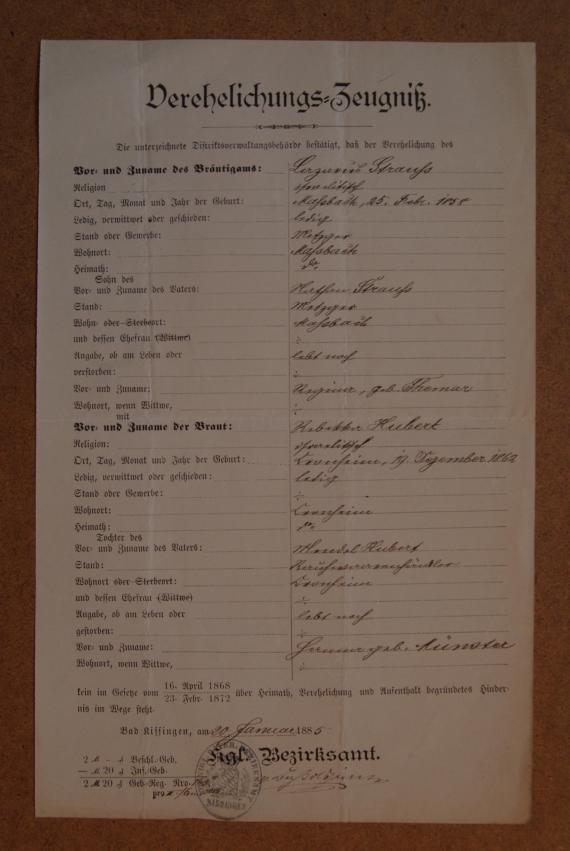 Verehelichungs-Zeugniß.
Die unterzeichnete Distriktsverwaltungsbehörde bestätigt, daß der Verehelichung des
Vor- und Zuname des Bräutigams: Lazarus Strauß
Religion israelitisch
Ort, Tag, Monat und Jahr der Geburt: Maßbach, 25. Febr. 1858
Ledig, verwittwet oder geschieden: ledig
Stand oder Gewerbe: Metzger
Wohnort: Maßbach
Heimath: do.
Sohn des
Vor- und Zuname des Vaters: Nathan Strauß
Stand: Metzger
Wohn- oder Sterbeort: Maßbach
und dessen Ehefrau (Wittwe) ÷
Angabe, ob am Leben oder lebt noch
verstorben: ÷
Vor- und Zuname: Regina, geb. Themar
Wohnort, wenn Wittwe, ÷
mit
Vor- und Zuname der Braut: Rebekka Hubert
Religion: israelitisch
Ort, Tag, Monat und Jahr der Geburt: Dezember 1862
Ledig, verwittwet oder geschieden: ledig
Stand oder Gewerbe: ÷
Wohnort:
Heimath: do.
Tochter des
Vor- und Zuname des Vaters: Mendel Hubert
Stand:
Wohnort oder Sterbeort:
und dessen Ehefrau (Wittwe) ÷
Angabe, ob am Leben oder lebt noch
gestorben: ÷
Vor- und Zuname: geb. Münster
Wohnort, wenn Wittwe, ÷
kein im Gesetze vom 16. April 1868 / 23. Febr. 1872 über Heimath, Verehelichung und Aufenthalt begründetes Hinder-
nis im Wege steht.
Bad Kissingen, am 20. Januar 1885
Kgl. Bezirksamt.
2 M - ₰ Beschl.-Geb.
— M 20 ₰ Ins.-Geb.
2 M 20 ₰ Geb.-Reg. Nro.
pro
KISSINGEN